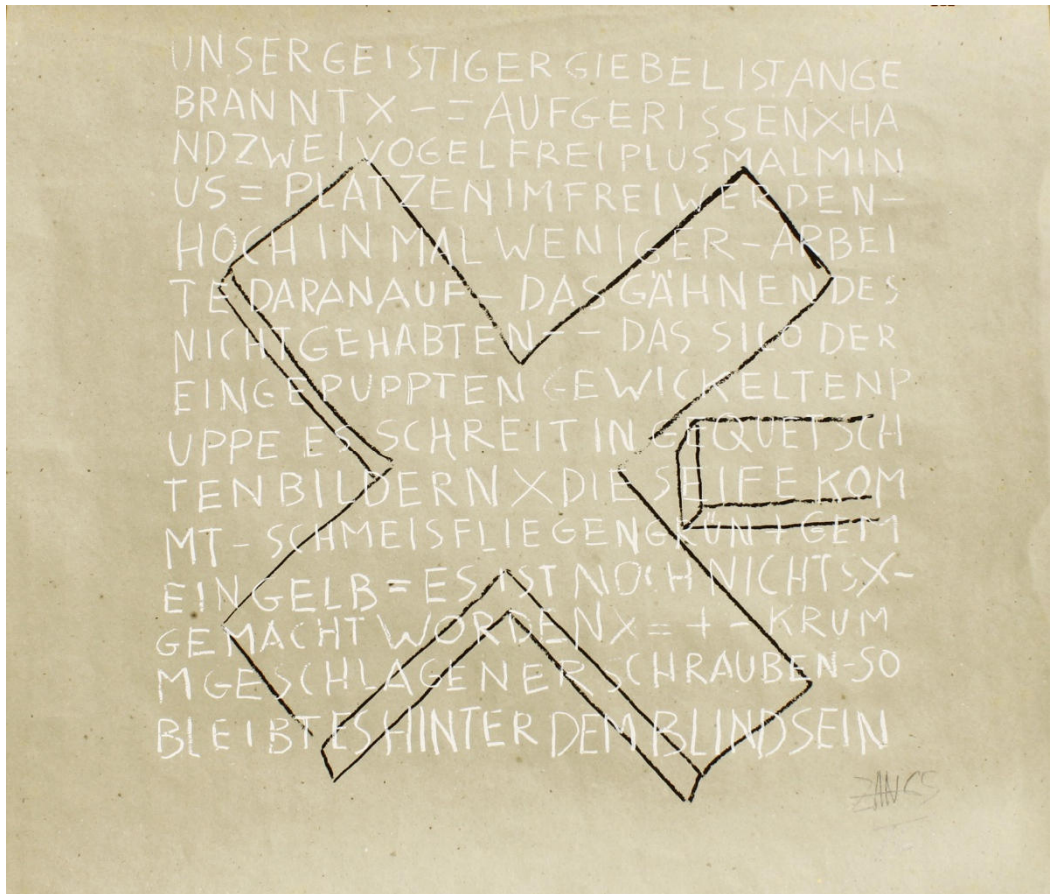 UNSERGEISTIGERGIEBELISTANGE
BRANNTX - = AUFGERISSENXHA
NDZWEIVOGELFREIPLUSMALMIN
US = PLATZENIMFREIWERDEN-
HOCH IN MAL WENIGER-ARBEI
TE DARANAUF - DAS GÄHNENDES
NICHTGEHABTEN - - DAS SILO DER
EINGEPUPPTEN GEWICKELTENP
UPPE ES SCHREIT IN GEQUETSCH
TENBILDERN X DIE SEIFE KOM
MT - SCHMEISFLIEGENGRÜN + GEM
EINGELB = ES IST NOCH NICHTSX-
GEMACHT WORDENX = + - KRUM
MGESCHLAGENERSCHRAUBEN-SO
BLEIBTESHINTER DEM BLINDSEIN
ZANGS